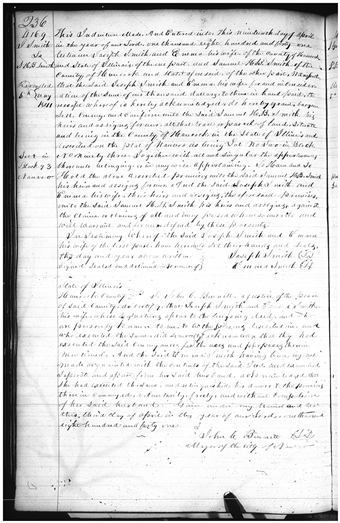 236
4169
J Smith
To
S H B Smith
Recorded
6th May
1841
Lot 2 in
Block 93
Nauvoo
This Indenture Made And Entered into This Nineteenth day of April
in the year of our Lord, one thousand eight hundred and forty one
between Joseph Smith and Emma his wife of the County of Hancock
and State of Illinois of the one part, and Samuel H B Smith of the
County of Hancock and State aforesaid of the other part, Witnesseth
that the said Joseph Smith and Emma his wife for and in consider-
ation of the sum of one thousand dollars to them in hand paid, the
receipt whereof is hereby acknowledged do hereby grant, bargain
Sell, Convey and Confirm unto the said Samuel H B Smith his
heirs and assigns forever all that tract or parcel of land, Situate
and lying in the County of Hancock in the State of Illinois and
described on the plat of Nauvoo as being Lot No Two in Block
No Ninety three. Together with all and singular the appurtenances
thereunto belonging or in any wise appertaining. To Have and to
Hold the above described premises unto the said Samuel H B Smith
his heirs and assigns forever And the said Joseph Smith and
Emma his wife their heirs and assigns, the aforesaid premises,
unto the said Samuel H B Smith his heirs and assigns, against
the claim or claims of all and every person whomsoever do and
will warrant and forever defend by these presents.
In testimony whereof the said Joseph Smith and Emma
his wife of the first part have hereunto set their hands and seals,
the day and year above written
Joseph Smith
Signed Sealed and delivered in presence of
Emma Smith
State of Illinois
Hancock County I John C Bennett, a Justice of the peace
of said County, do certify that Joseph Smith and
his wife, whose signatures appear to the foregoing deed, and
are personally known to me to be the persons described in, and
who executed the same did severally acknowledge that they had
executed the said Conveyance for the uses and purposes therein
Mentioned. And the said Emma Smith having been by me
made acquainted with the contents of the said Deed and examined
separate and apart from her said husband, acknowledged that
She had executed the same, and relinquishes her dower to the premises
therein Conveyed voluntarily freely and without compulsion
of her said husband. Given under my hand and seal
this third day of April in the year of our Lord one thousand
eight hundred and forty one
John C Bennett
Mayor of the City of